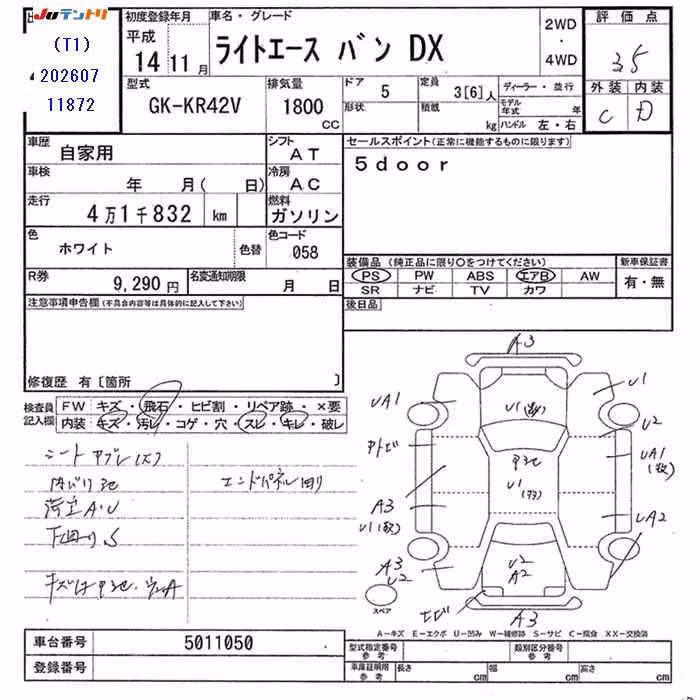 JUテントリ
(T1)
202607
11872
初度登録年月
平成
14 11 月
車名・グレード
ライトエース バン DX
2WD
・
4WD
評価点
3.5
外装 内装
C D
型式
GK-KR42V
排気量
1800
CC
ドア 5
形状
定員 3[6]人
積載 kg
ディーラー・並行
モデル年式 年
ハンドル 左・右
車歴
自家用
シフト
AT
車検
年 月( 日)
冷房
AC
走行
4万1千832 km
燃料
ガソリン
色
ホワイト
色替
色コード
058
R券
9,290 円
名変通知期限
月 日
セールスポイント(正常に機能するものに限ります)
5door
装備品(純正品に限り○をつけてください)
PS PW ABS エアB AW
SR ナビ TV カワ
新車保証書
有・無
後日品
注意事項申告欄(不具合内容等は具体的に記入して下さい)
修復歴 有〔箇所 〕
検査員
記入欄
FW キズ・飛石・ヒビ割・リペア跡・×要
内装 キズ・汚レ・コゲ・穴・スレ・キレ・破レ
シートヤブレ(大)
内バリ
荷室A・U
下回りS
エンドパネル凹
キズ
A3
U1
U1
UA1
U2
UA1
A3
U1
UA2
A3
U2
U1
U2
A2
A3
スペア
A-キズ E-エクボ U-凹み W-補修跡 S-サビ C-腐食 XX-交換済
車台番号 5011050
登録番号
型式指定番号
参考
類別区分番号
参考
車庫証明用
参考
長さ cm 幅 cm 高さ cm